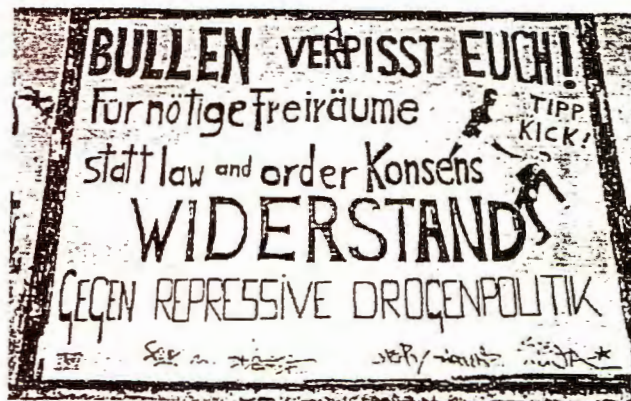 BULLEN VERPISST EUCH!
Für nötige Freiräume
TIPP
KICK!
statt law and order Konsens
WIDERSTAND
GEGEN REPRESSIVE DROGENPOLITIK